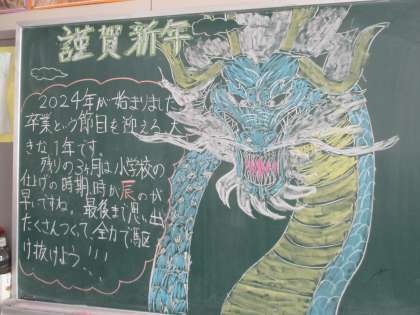 謹賀新年
2024年が始まりました
卒業という節目を迎える大
きな1年です。
残りの3ヶ月は小学校の
仕上げの時期。時が辰のが
早いですね。最後まで思い出
たくさんつくって、全力で駆
け抜けよう!!!